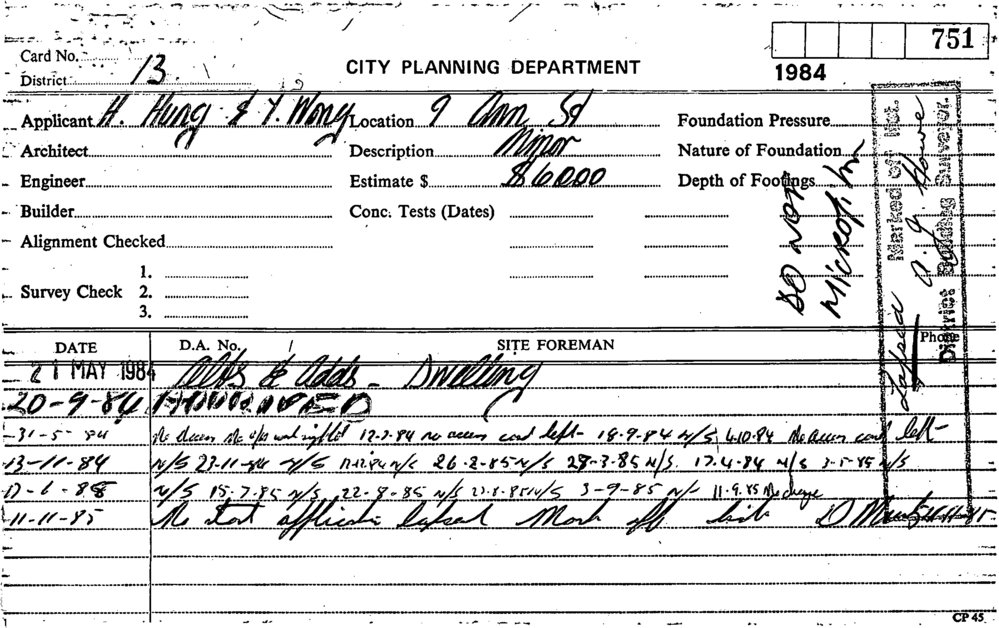 751
1984
Card No.
District 13
CITY PLANNING DEPARTMENT
Applicant H. Hung & Y. Wong Location 9 Ann St Foundation Pressure
Architect Description Minor Nature of Foundation
Engineer Estimate $ $6000 Depth of Footings
Builder Conc. Tests (Dates)
Alignment Checked
1.
Survey Check 2.
3.
DO NOT
MICROFILM
Lapsed
Marked off list.
A. J. Howe
District Building Surveyor.
DATE D.A. No. SITE FOREMAN Phone
21 MAY 1984 Alts & Adds - Dwelling
20-9-84 APPROVED
31-5-84 No access 12-7-84 no access card left - 18-9-84 N/S 4.10.84 No access card left -
13-11-84 N/S 23-11-84 N/S N/S 26-2-85 N/S 28-3-85 N/S. 17.4.84 N/S 3-5-85 N/S
N/S 15.7.85 N/S 22-8-85 N/S N/S 3-9-85 N/S 11.9.85 No change
11-11-85 No start application lapsed Mark off list 11-11-85
CP 45